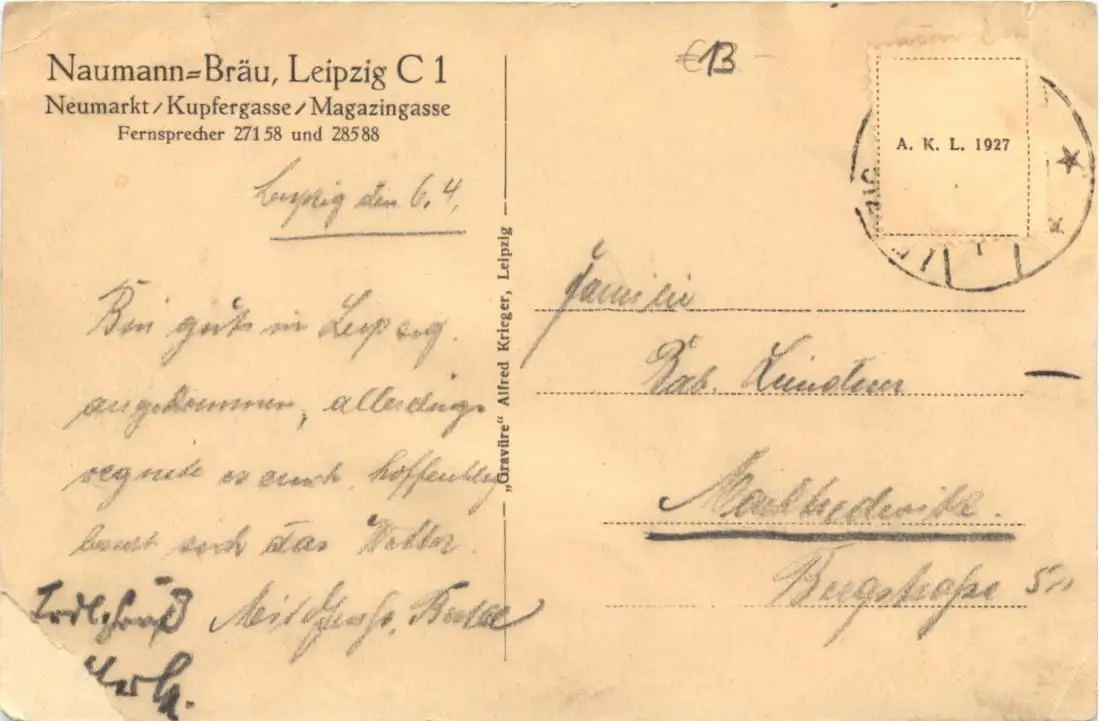 Naumann=Bräu, Leipzig C 1
Neumarkt / Kupfergasse / Magazingasse
Fernsprecher 27158 und 28588
Leipzig den 6.4.
Bin gut in Leipzig
angekommen, allerdings
regnete es auch. hoffentlich
bessert sich das Wetter.
Mit
„Gravüre“ Alfred Krieger, Leipzig
€13.-
A. K. L. 1927
Familie
Marktredwitz.
Bergstraße